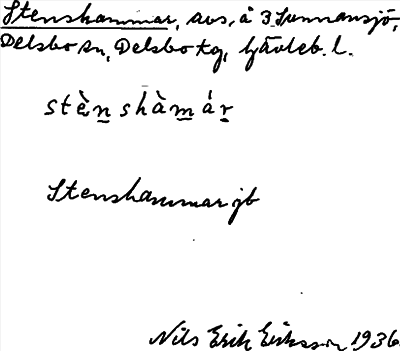 Stenshammar, avs, å 3 Sunnansjö,
Delsbo sn, Delsbo tg, Gävleb. l.
stènshàmár
Stenshammar jb
Nils Erik Eriksson 1936